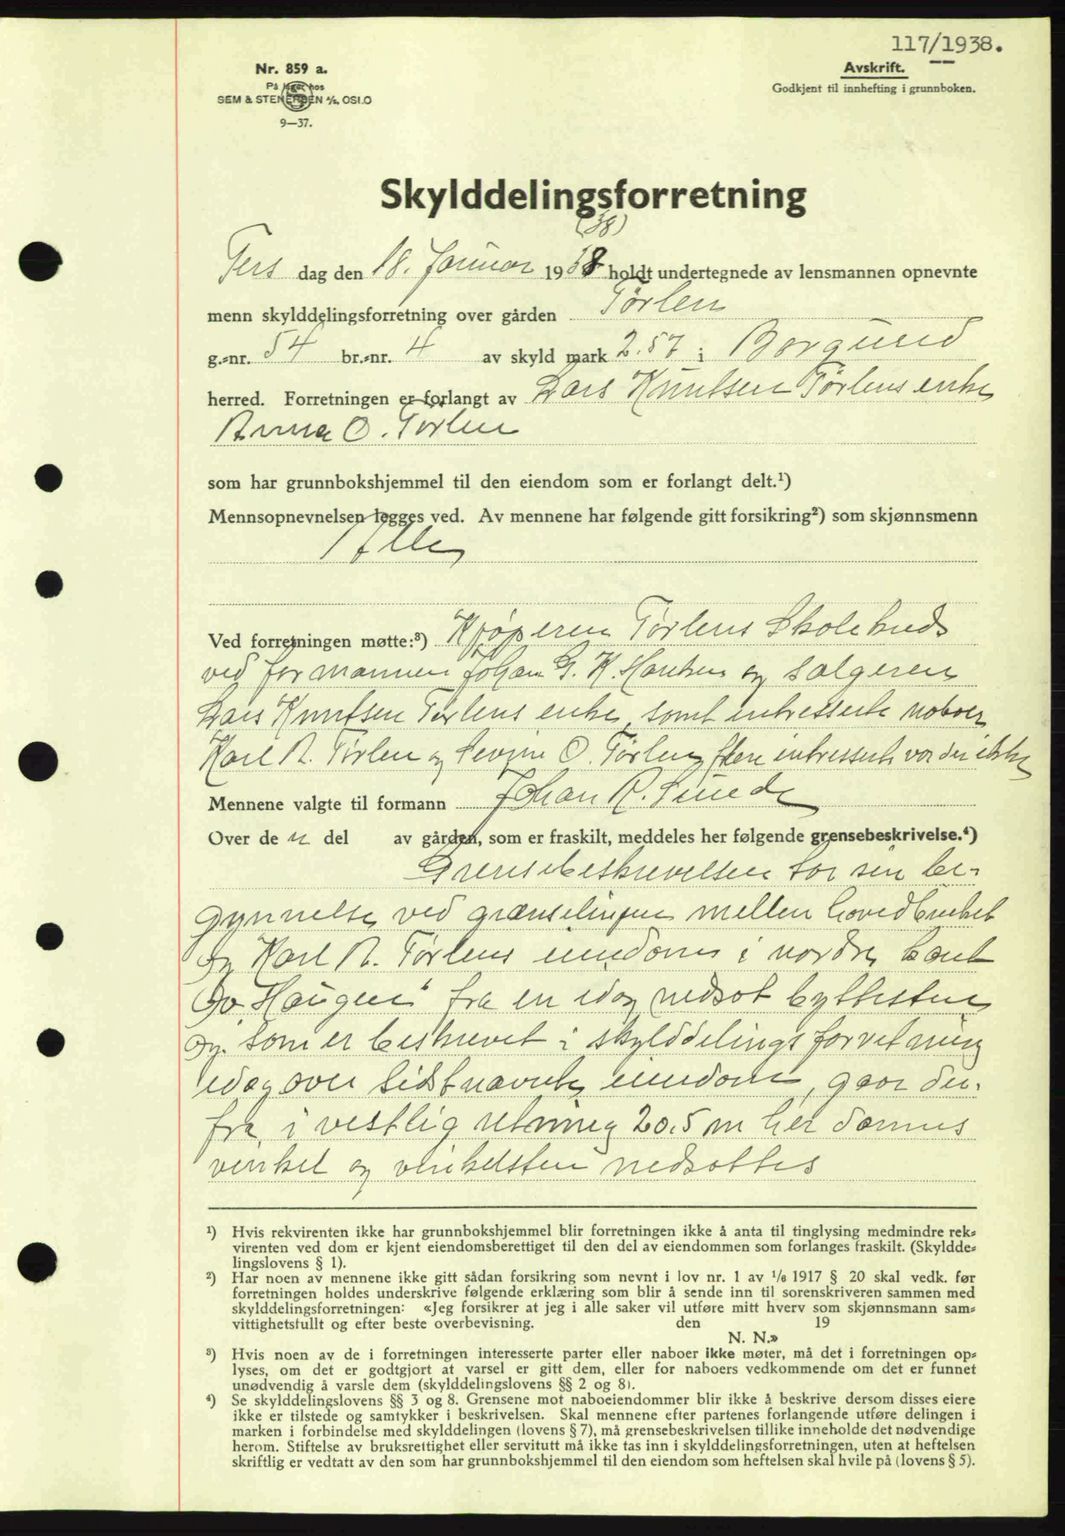 117/1938.
Nr. 859 a.
På lager hos
SEM & STENERSEN A/S, OSLO
9—37.
Avskrift.
Godkjent til innhefting i grunnboken.
Skylddelingsforretning
(38)
Tirs dag den 18. Januar 1938 holdt undertegnede av lensmannen opnevnte
menn skylddelingsforretning over gården Tørlen
g.-nr. 54 br.-nr. 4 av skyld mark 2.57 i Borgund
herred. Forretningen er forlangt av Lars Knutsen Tørlens enke
Anna O. Tørlen
som har grunnbokshjemmel til den eiendom som er forlangt delt.¹)
Mennsopnevnelsen legges ved. Av mennene har følgende gitt forsikring²) som skjønnsmenn
Alle
Ved forretningen møtte:³) Kjøperen Tørlens Skolekreds
ved formannen Johan G. K. og sælgeren
Lars Knutsen Tørlens enke, samt intresserte naboer
Karl R. Tørlen og Sevrine O. Tørlen, flere intresserte var der ikke
Mennene valgte til formann Johan R. Sunde
Over de n del av gården, som er fraskilt, meddeles her følgende grensebeskrivelse.⁴)
Grensebeskrivelsen tar sin be-
gynnelse ved grænselinjen mellem hovedbruket
og Karl R. Tørlens eiendom i nordre kant
av Haugen" fra en idag nedsat byttesten
og som er beskrevet i skylddelingsforretning
idag over sidstnævnte eiendom, gaar der-
fra i vestlig retning 20,5 m her dannes
vinkel og vinkelsten nedsattes
¹) Hvis rekvirenten ikke har grunnbokshjemmel blir forretningen ikke å anta til tinglysing medmindre rek-
virenten ved dom er kjent eiendomsberettiget til den del av eiendommen som forlanges fraskilt. (Skyldde-
lingslovens § 1).
²) Har noen av mennene ikke gitt sådan forsikring som nevnt i lov nr. 1 av ¹/₆ 1917 § 20 skal vedk. før
forretningen holdes underskrive følgende erklæring som blir å sende inn til sorenskriveren sammen med
skylddelingsforretningen: «Jeg forsikrer at jeg i alle saker vil utføre mitt hverv som skjønnsmann sam-
vittighetsfullt og efter beste overbevisning. den 19
N. N.»
³) Hvis noen av de i forretningen interesserte parter eller naboer ikke møter, må det i forretningen op-
lyses, om det er godtgjort at varsel er gitt dem, eller for naboers vedkommende om det er funnet
unødvendig å varsle dem (skylddelingslovens §§ 2 og 8).
⁴) Se skylddelingslovens §§ 3 og 8. Grensene mot naboeiendommer blir ikke å beskrive dersom disses eiere
ikke er tilstede og samtykker i beskrivelsen. Skal mennene efter partenes forlangende utføre delingen i
marken i forbindelse med skylddelingen (lovens § 7), må grensebeskrivelsen tillike inneholde det nødvendige
herom. Stiftelse av bruksrettighet eller servitutt må ikke tas inn i skylddelingsforretningen, uten at heftelsen
skriftlig er vedtatt av den som har grunnbokshjemmel til den eiendom som heftelsen skal hvile på (lovens § 5).